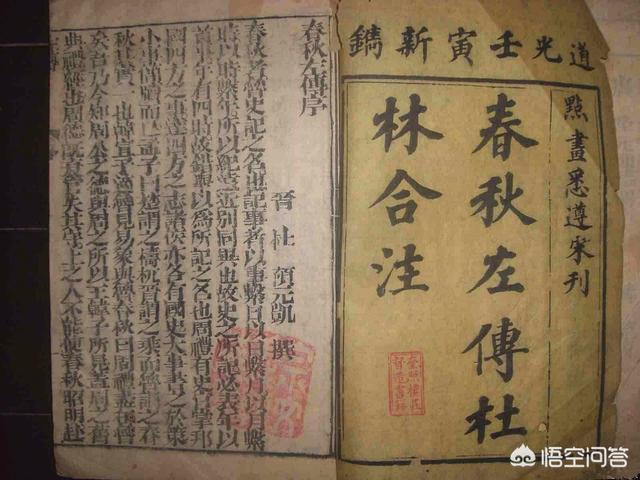 道光壬寅新鐫
點畫悉遵宋刊
春秋左傳杜
林合注
春秋左傳序
晉 杜 預元凱 撰
春秋者魯史記之名也記事者以事繫日以日繫月以月繫
時以時繫年所以紀遠近別同異也故史之所記必表年以
首事年有四時故錯舉以爲所記之名也周禮有史官掌邦
國四方之事達四方之志諸侯亦各有國史大事書之於策
小事簡牘而已孟子曰楚謂之檮杌晉謂之乘而魯謂之春
秋其實一也韓宣子適魯見易象與魯春秋曰周禮盡在魯
矣吾乃今知周公之德與周之所以王韓子所見蓋周之舊
典禮經也周德既衰官失其守上之人不能使春秋昭明赴
悟空问答